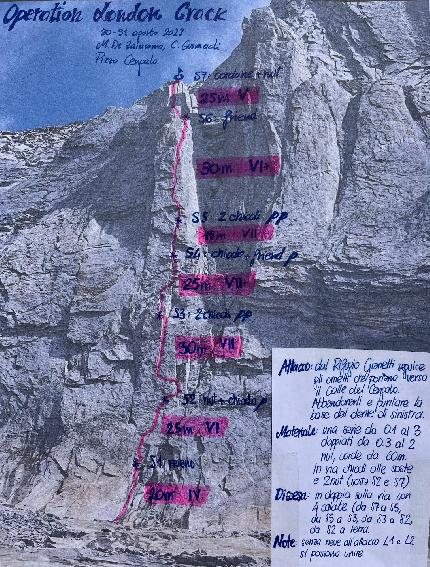 Operation London Crack
30-31 agosto 2023
M. De Zaiacomo, C. Gianatti
Piero Cengalo
S7: cordone + nut
25m V
S6: friend
30m VI+
S5 2 chiodi
15m VII
S4: chiodo + friend
25m VII+
S3: 2 chiodi
30m VII
S2: nut + chiodo
25m VI
S1:
20m IV
Attacco: dal Rifugio Gianetti seguire
gli ometti che portano verso
il Colle del Cengalo.
Abbandonarli e puntare la
base del dente di sinistra.
Materiale: una serie da 0.1 al 3
doppiati da 0.3 al 2
nut, corde da 60m.
in via chiodi alle soste
e 2 nut (sosta S2 e S7)
Discesa: in doppia sulla via con
4 calate (da S7 a S5,
da S5 a S3, da S3 a S2,
da S2 a terra.
Note: senza neve all'attacco L1 e L2
si possono unire